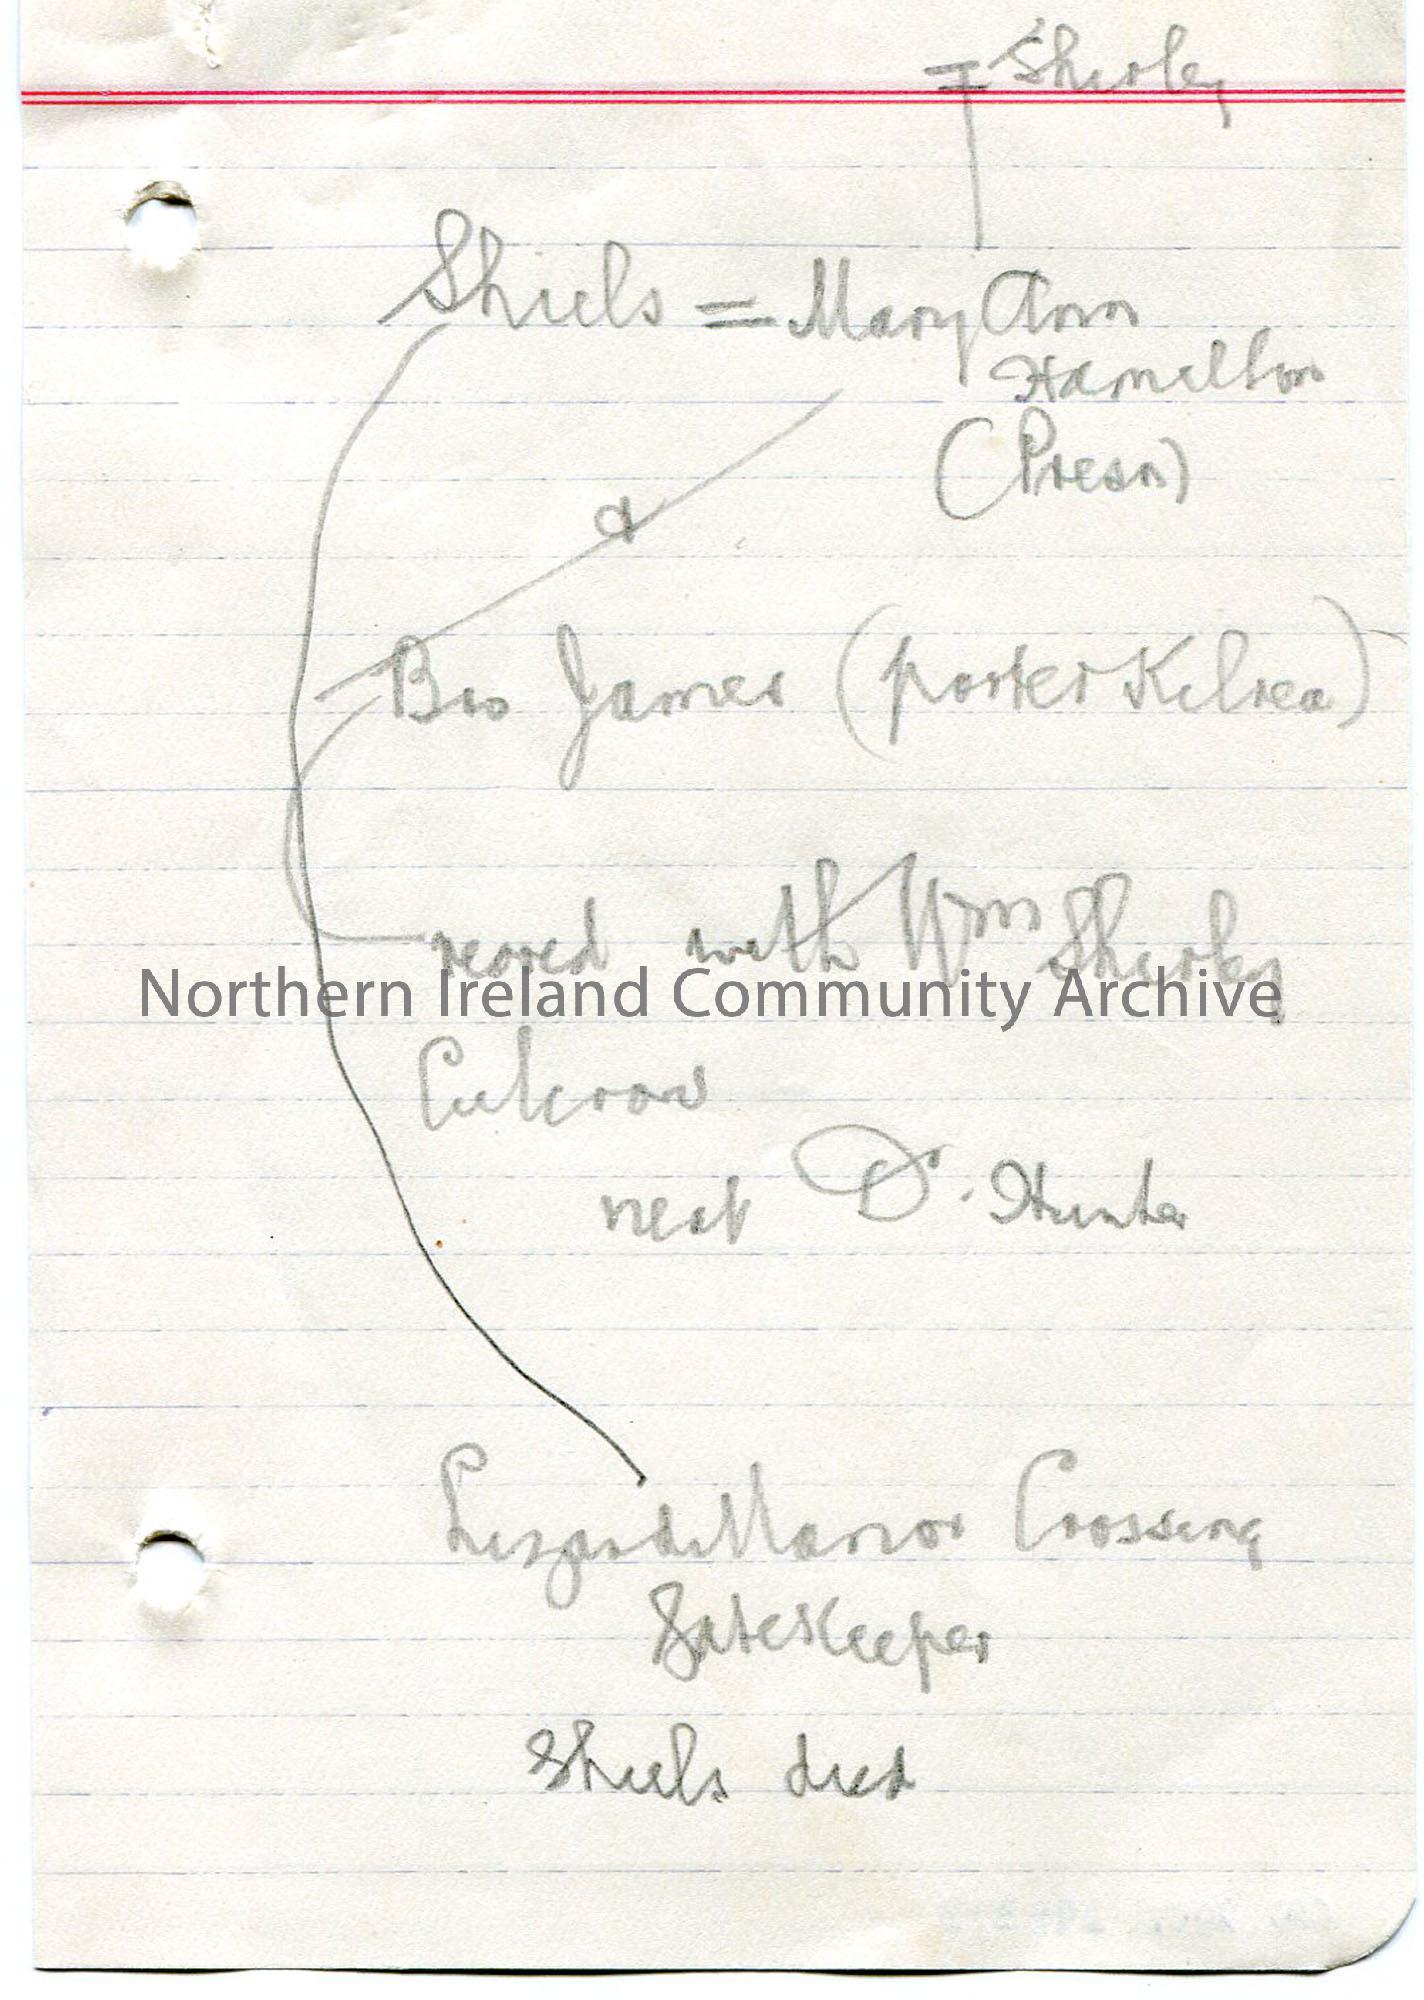 = Shirley
Shiels = Mary Ann
Hamilton
(Presn)
&
Bro James (porter Kilrea)
reared with Wm Shirley
Northern Ireland Community Archive
Culcrow
next Dr. Hunter
Lizard Manor Crossing
Gatekeeper
Shiels died